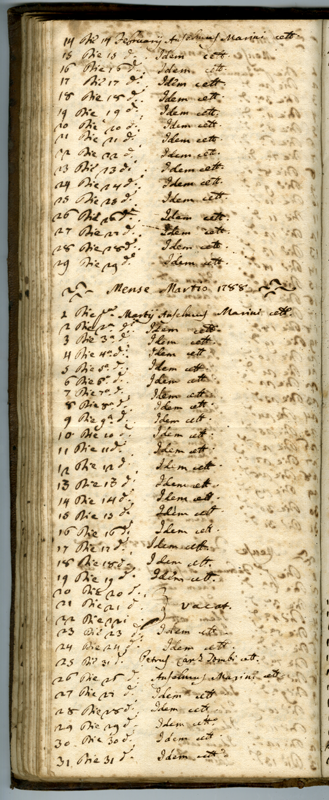 14 Die 14 February Anselmus Marini cett
15 Die 15 d. Idem cett.
16 Die 16 d. Idem cett.
17 Die 17 d. Idem cett.
18 Die 18 d. Idem cett.
19 Die 19 d. Idem cett.
20 Die 20 d. Idem cett.
21 Die 21 d. Idem cett.
22 Die 22 d. Idem cett.
23 Die 23 d. Idem cett.
24 Die 24 d. Idem cett.
25 Die 25 d. Idem cett.
26 Die 26 d. Idem cett.
27 Die 27 d. Idem cett.
28 Die 28 d. Idem cett.
29 Die 29 d. Idem cett.
Mense Martio 1788
Die Martij Anselmus Marini cett.
2 Die 2 d. Idem cett.
3 Die 3 d. Idem cett.
4 Die 4 d. Idem cett.
5 Die 5 d. Idem cett.
6 Die 6 d. Idem cett.
7 Die 7 d. Idem cett.
8 Die 8 d. Idem cett.
9 Die 9 d. Idem cett.
10 Die 10 d. Idem cett.
11 Die 11 d. Idem cett.
12 Die 12 d. Idem cett.
13 Die 13 d. Idem cett.
14 Die 14 d. Idem cett.
15 Die 15 d. Idem cett.
16 Die 16 d. Idem cett.
17 Die 17 d. Idem cett.
18 Die 18 d. Idem cett.
19 Die 19 d. Idem cett.
20 Die 20 d.
21 Die 21 d. vacat.
22 Die 22
23 Die 23 d. Idem cett.
24 Die 24 d. Idem cett.
25 Die Petrus cett.
26 Die 26 d. Anselmus Marini cett
27 Die 27 d. Idem cett.
28 Die 28 d. Idem cett.
29 Die 29 d. Idem cett.
30 Die 30 d. Idem cett.
31 Die 31 d. Idem cett.